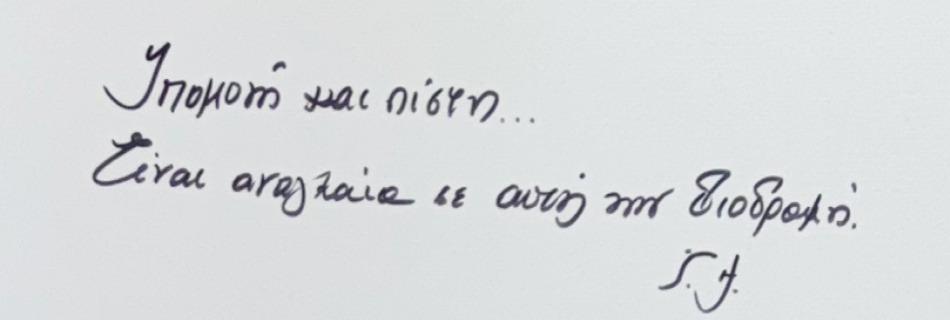 Υπομονή και πίστη...
Είναι αναγκαία σε αυτή την διαδρομή.